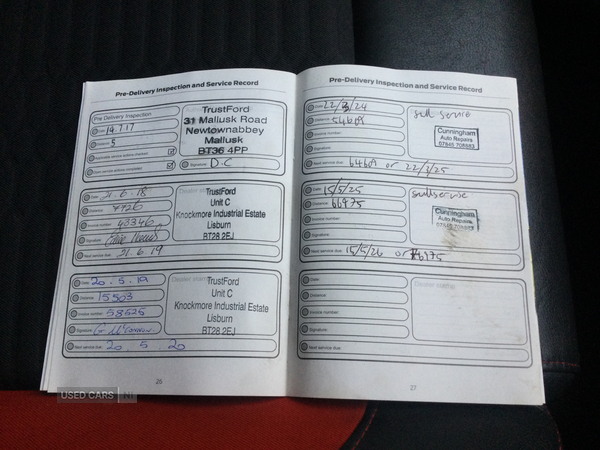 Pre-Delivery Inspection and Service Record
Pre Delivery Inspection
Date: 14.7.17
Distance: 5
TrustFord
31 Mallusk Road
Newtownabbey
Mallusk
BT36 4PP
Signature: D.C
Date: 21.6.18
Distance: 7726
Invoice number: 43346
Signature:
Next service due: 21.6.19
TrustFord
Unit C
Knockmore Industrial Estate
Lisburn
BT28 2EJ
Date: 20.5.19
Distance: 15503
Invoice number: 58525
Signature:
Next service due: 20 5 20
TrustFord
Unit C
Knockmore Industrial Estate
Lisburn
BT28 2EJ
26
Pre-Delivery Inspection and Service Record
Date: 22/3/24
Distance: 54609
Invoice number:
Signature:
Next service due: 64609 or 22/3/25
full service
Cunningham
Auto Repairs
Date: 15/5/25
Distance: 66975
Invoice number:
Signature:
Next service due: 15/5/26 or 76975
full service
Cunningham
Auto Repairs
Date:
Distance:
Invoice number:
Signature:
Next service due:
Dealer stamp
27
USED CARS NI